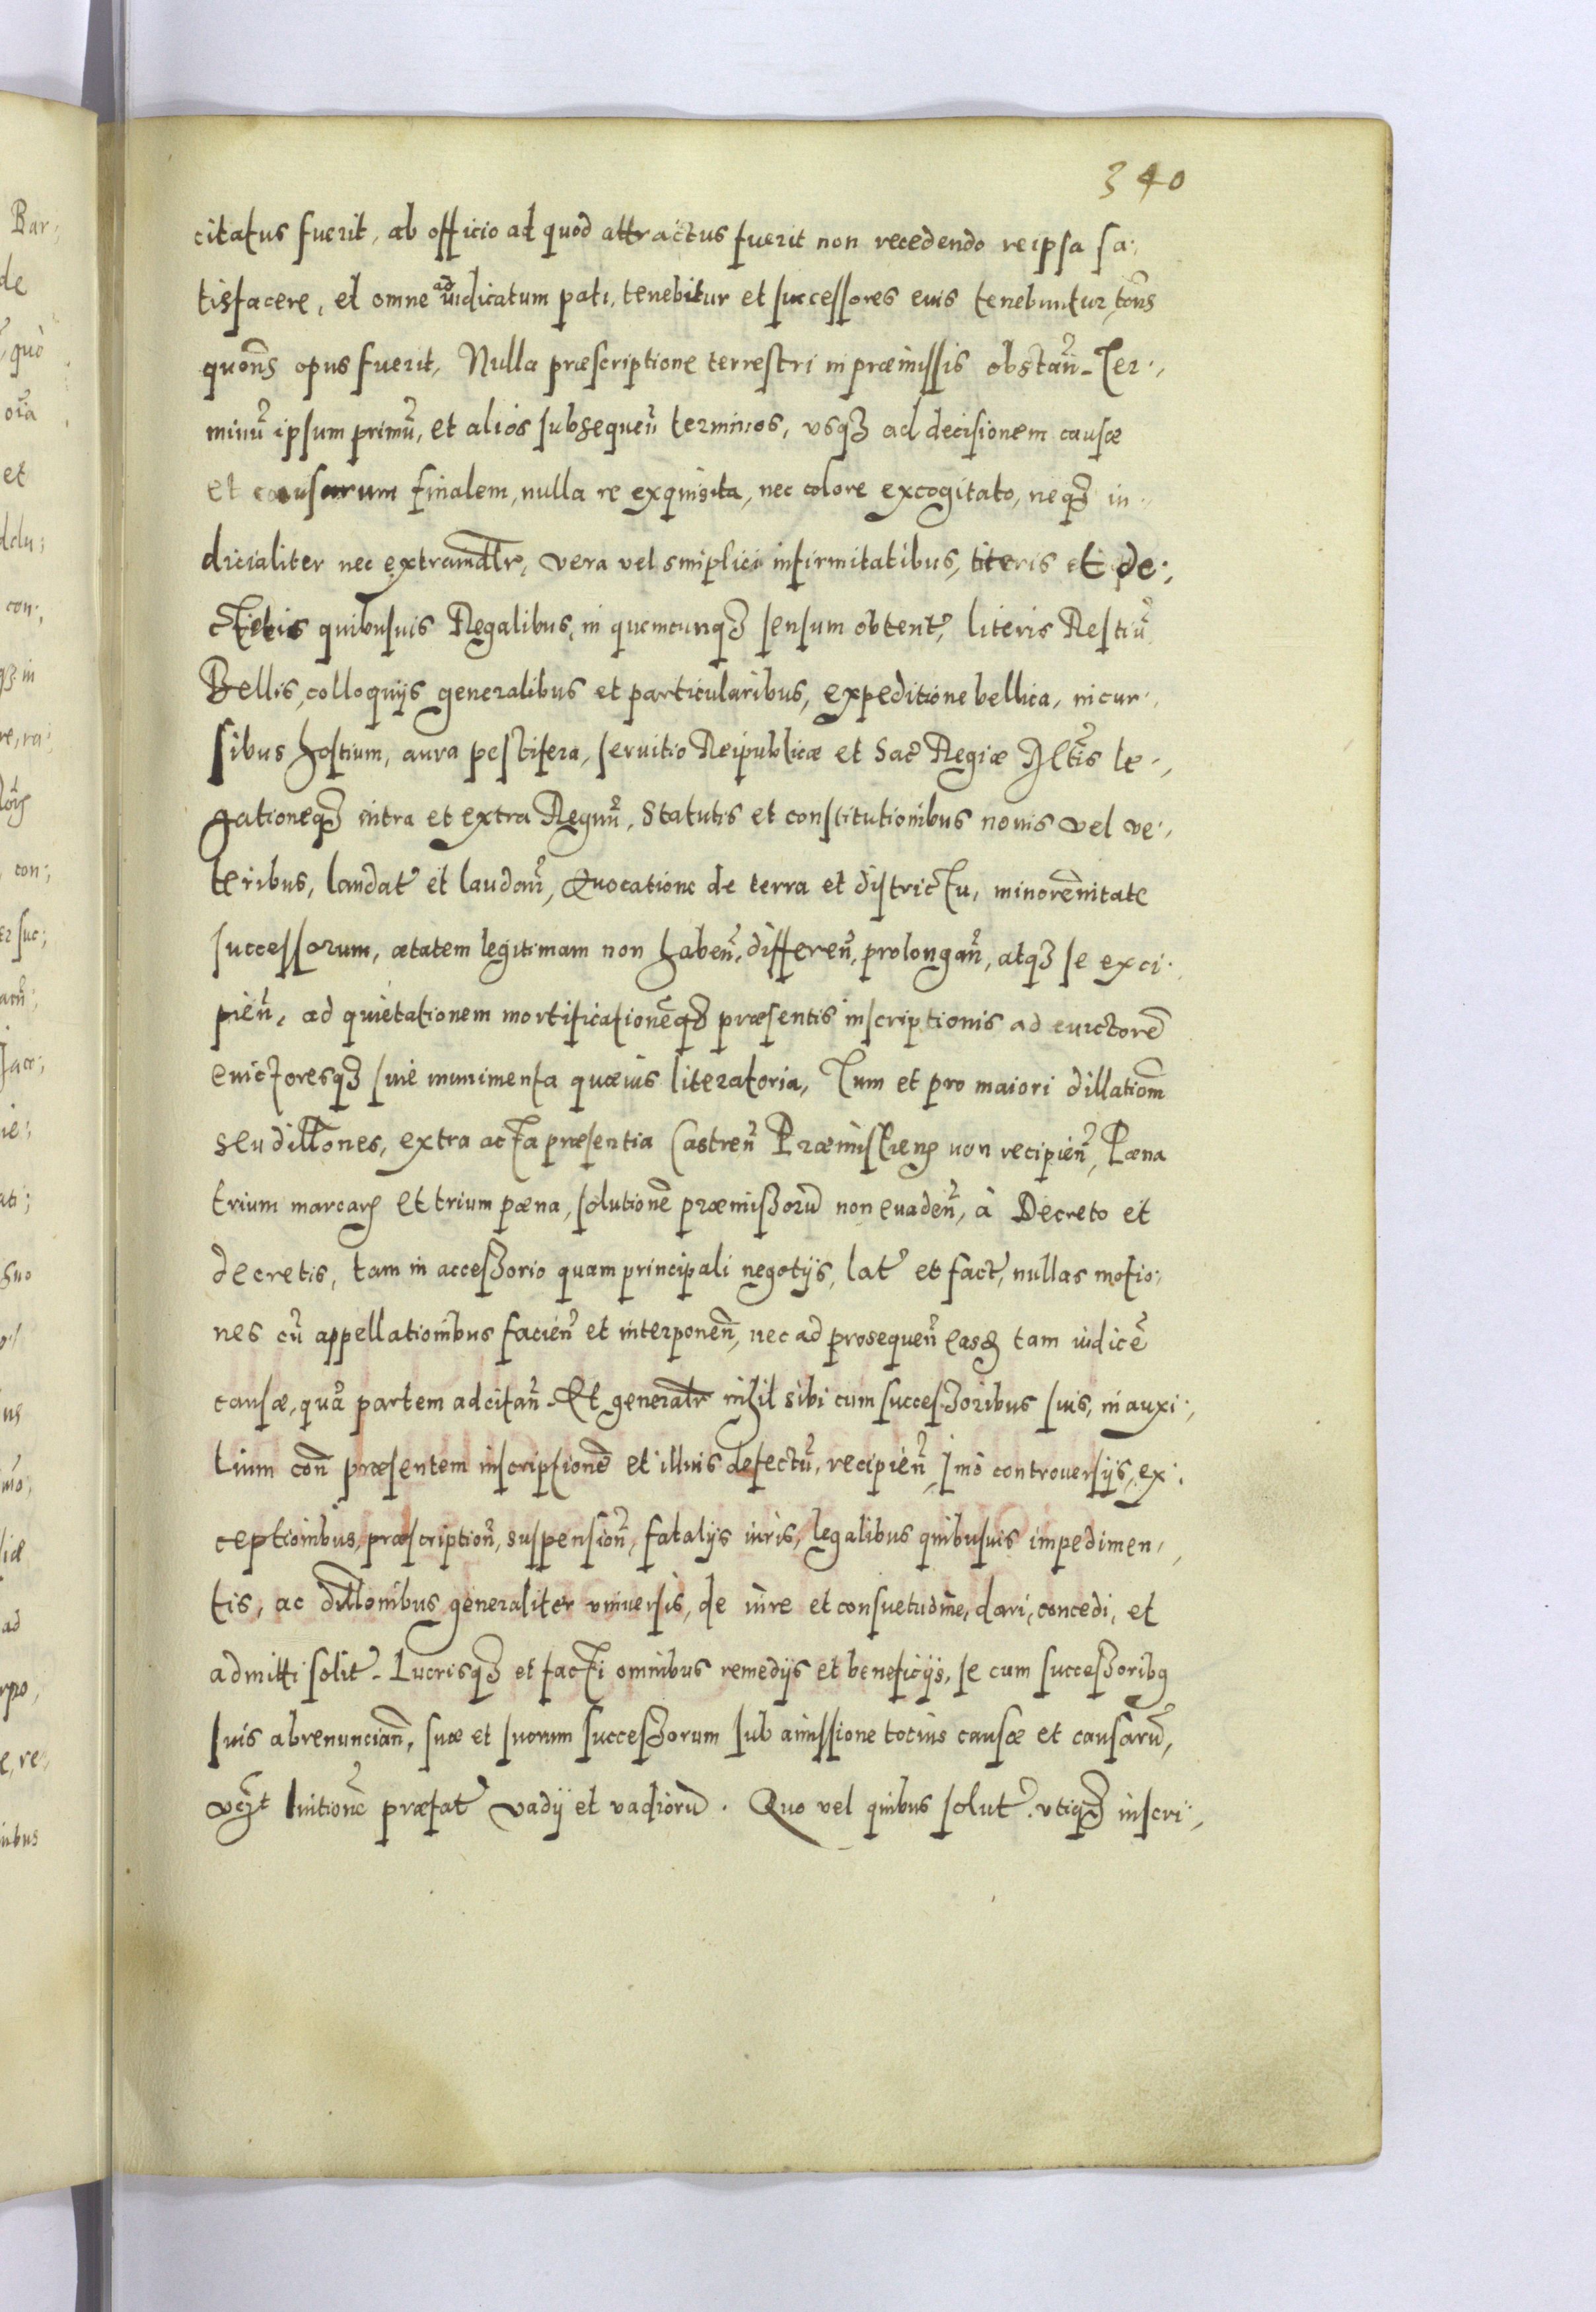 340
citatus fuerit, ab officio ad quod attractus fuerit non recedendo reipsa sa:
tisfacere, et omne adiudicatum pati, tenebitur et successores eius tenebuntur, tons
quons opus fuerit, Nulla præscriptione terrestri in præmissis obstan̄. Ter:,
minū ipsum primū, et alios subsequen̄ terminos, vsqȝ ad decisionem causæ
et causarum finalem, nulla re exquisita, nec colore excogitato, neqȝ iu:
dicialiter nec extraiudlr, vera vel simplici infirmitatibus, literis et de:,
cretis quibusuis Regalibus, in quemcunqȝ sensum obtent, literis Restiū
Bellis, colloquijs generalibus et particularibus, expeditione bellica, incur:,
sibus hostium, aura pestifera, seruitio Reipublicæ et Sac Regiæ Mttis le:,
gationeqȝ intra et extra Regnū, Statutis et constitutionibus nouis vel ve:,
teribus, laudat et laudan̄, Euocatione de terra et districtu, minorennitate
successorum, ætatem legitimam non haben̄, differen̄, prolongan̄, atqȝ se exci:
pien̄, ad quietationem mortificationēqȝ præsentis inscriptionis ad euictorē
euictoresqȝ siue munimenta quæuis literatoria, Tum et pro maiori dillationē
seu dillones, extra acta præsentia Castren̄ Præmislien̄ non recipien̄, Pœna
trium marcarȝ et trium pœna, solutionē præmissorū non euaden̄, à Decreto et
decretis, tam in accessorio quam principali negotijs, lat et fact, nullas motio:
nes cū appellationibus facien̄ et interponen̄, nec ad prosequen̄ easȝ tam iudicē
causæ, quā partem adcitan̄. Et generalr nihil sibi cum successoribus suis, in auxi:,
lium con̄ præsentem inscriptionē et illius defectū, recipien̄, Imò controuersijs, ex:
ceptionibus, præscription̄, suspension̄, fatalijs iuris, legalibus quibusuis impedimen:,
tis, ac dillonibus generaliter vniuersis, de iure et consuetudine, dari, concedi, et
admitti solit. Lucrisqȝ et facti omnibus remedijs et beneficijs, se cum successoribȝ
suis abrenuncian̄, suæ et suorum successorum sub amissione totius causæ et causarū,
præfat vadij et vadiorū. Quo vel quibus solut. vtiqȝ inscri:,